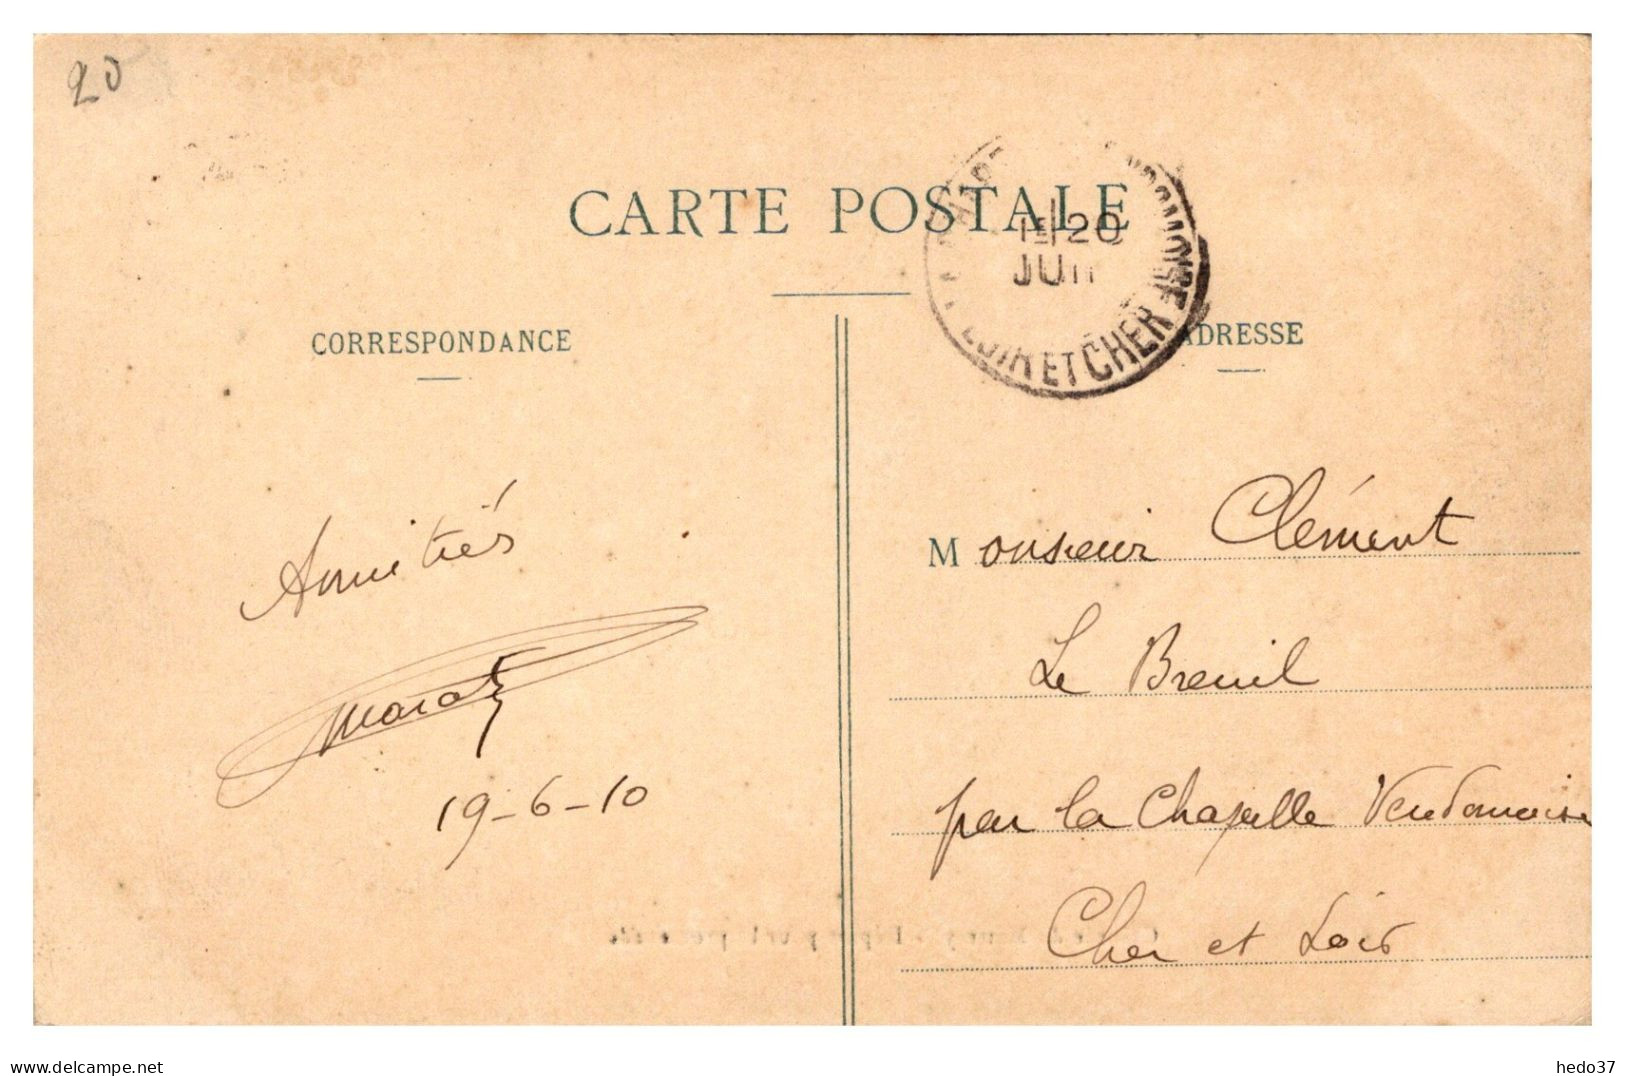 20
CARTE POSTALE
1E 20
JUI
LOIR ET CHER
CORRESPONDANCE
ADRESSE
Amitiés
19-6-10
Monsieur Clément
Le Breuil
par la Chapelle Vendomoise
Cher et Loir
www.delcampe.net
hedo37